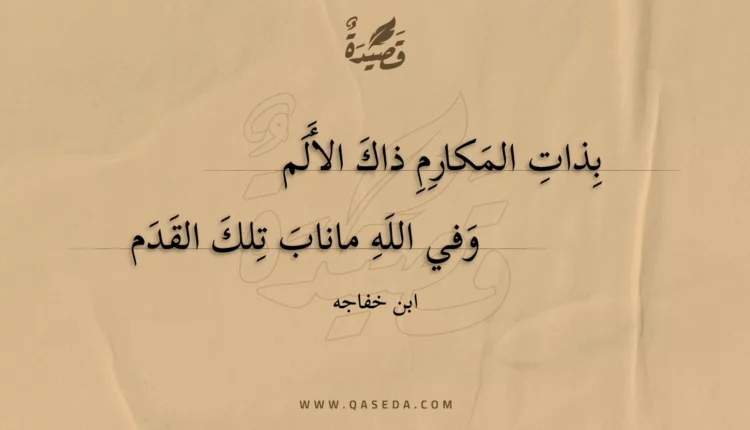 قَصِيْدَةٌ
بِذاتِ المَكارِمِ ذاكَ الأَلَم
وَفي اللَهِ مانابَ تِلكَ القَدَم
ابن خفاجه
WWW.QASEDA.COM